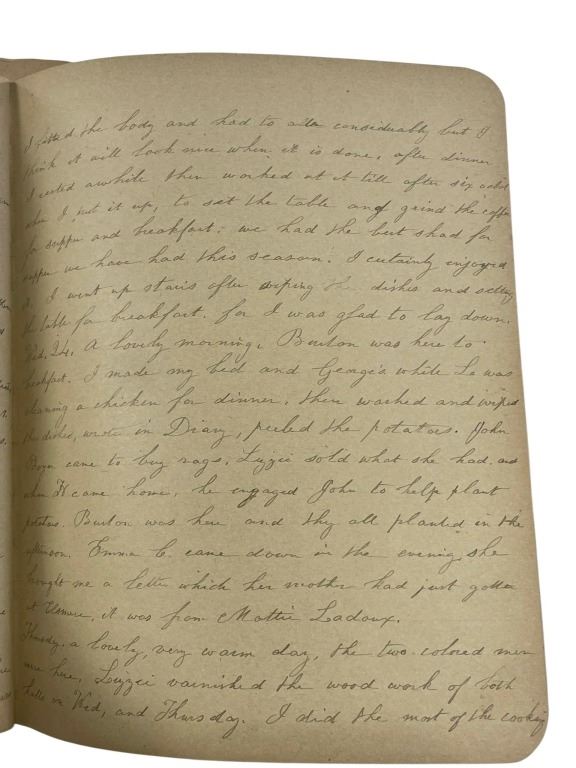 I fitted the body and had to alter considerably but I
think it will look nice when it is done, after dinner
I rested awhile then worked at it till after six oclock
when I put it up, to set the table and grind the coffee
for supper and breakfast: we had the best shad for
supper we have had this season. I certainly enjoyed
it, I went up stairs after wiping the dishes and setting
the table for breakfast. for I was glad to lay down.
Wed. 24. A lovely morning. Burton was here to
breakfast. I made my bed and George's while Le was
cleaning a chicken for dinner. then washed and wiped
the dishes, wrote in Diary, peeled the potatoes. John
came to buy rags. Lizzie sold what she had. and
when H came home, he engaged John to help plant
potatoes. Burton was here and they all planted in the
afternoon. Emma C. came down in the evening, she
brought me a letter which her mother had just gotten
at it was from Mattie Ladoux.
Thursday. a lovely, very warm day, the two colored men
were here, Lizzie varnished the wood work of both
halls on Wed, and Thursday. I did the most of the cooking